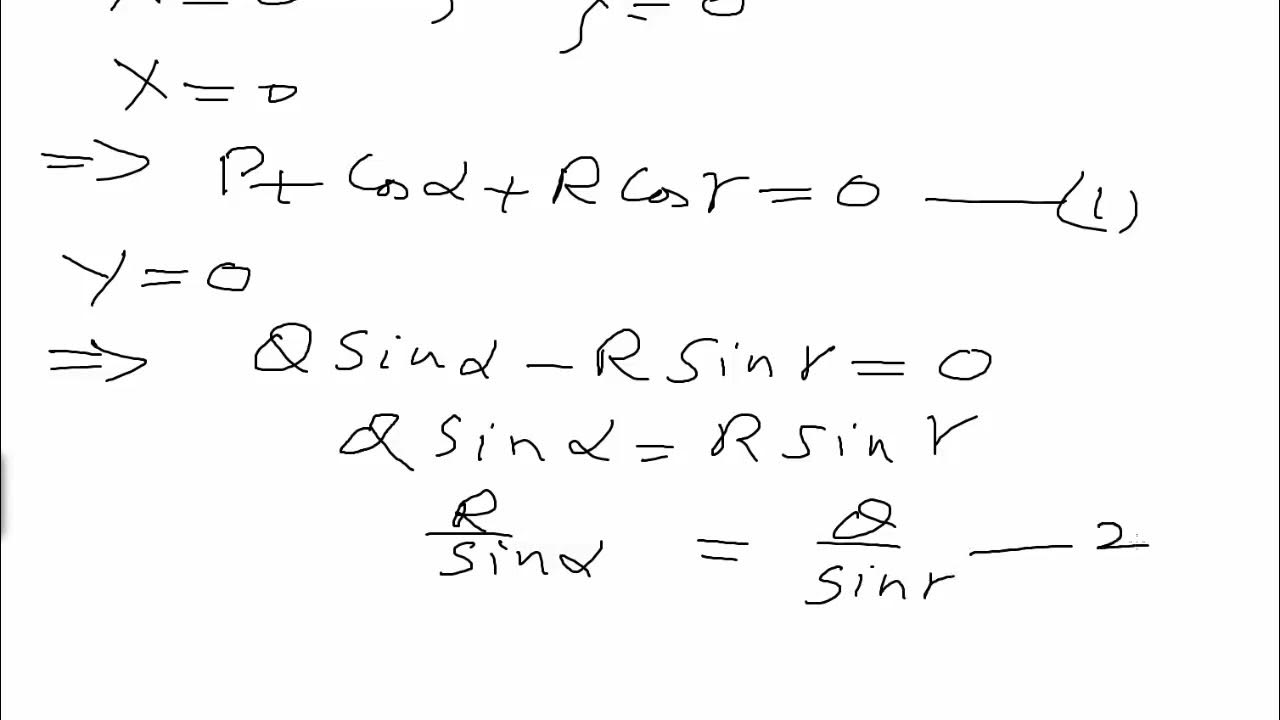 X = 0
=> P + Cos α + R Cos γ = 0 —— (1)
Y = 0
=> Q Sin α − R Sin γ = 0
Q Sin α = R Sin γ
R / Sin α = Q / Sin γ —— 2